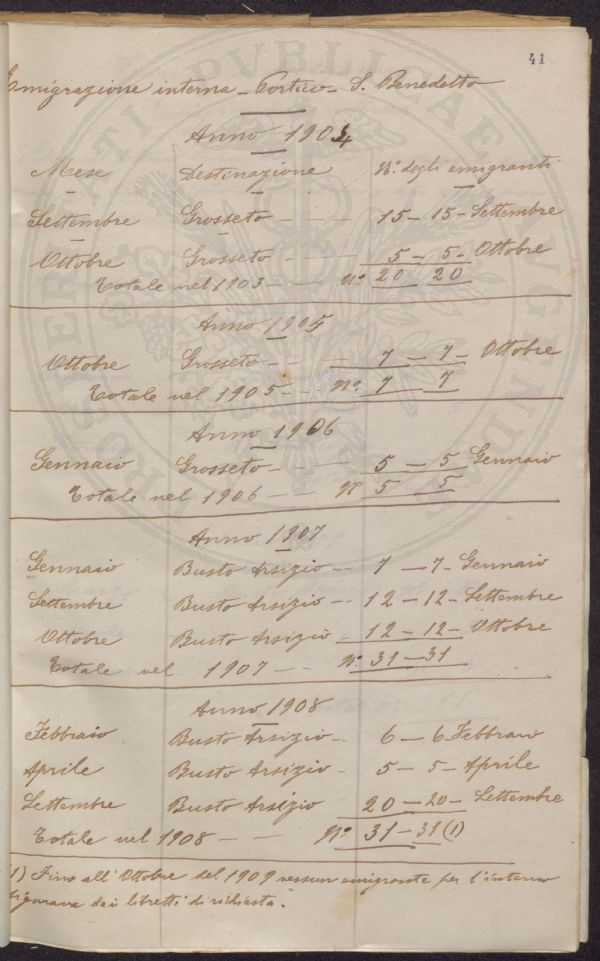 41
Emigrazione interna - Portico - S. Benedetto
Anno 1904
Mese Destinazione N.° degli emigranti
Settembre Grosseto - - - 15 - 15 - Settembre
Ottobre Grosseto - - - 5 - 5 - Ottobre
Totale nel 1903 - - - N.° 20 20
Anno 1905
Ottobre Grosseto - - - 7 - 7 - Ottobre
Totale nel 1905 - - - N.° 7 7
Anno 1906
Gennaio Grosseto - - - 5 - 5 Gennaio
Totale nel 1906 - - N.° 5 5
Anno 1907
Gennaio Busto Arsizio - - 7 - 7 - Gennaio
Settembre Busto Arsizio - - 12 - 12 - Settembre
Ottobre Busto Arsizio - 12 - 12 - Ottobre
Totale nel 1907 - - N.° 31 - 31
Anno 1908
Febbraio Busto Arsizio - - 6 - 6 Febbraio
Aprile Busto Arsizio - 5 - 5 - Aprile
Settembre Busto Arsizio 20 - 20 - Settembre
Totale nel 1908 - - N.° 31 - 31 (1)
(1) Fino all'Ottobre del 1909 nessun emigrante per l'interno
figurava dai libretti di richiesta.